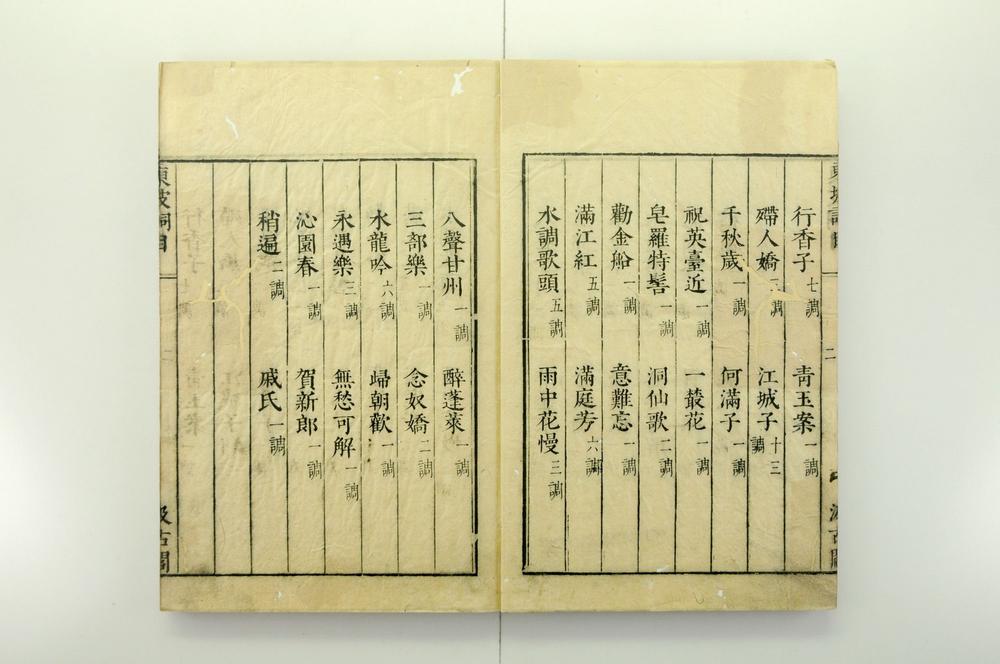 行香子 七調 青玉案 一調
殢人嬌 二調 江城子 十三調
千秋歲 一調 何滿子 一調
祝英臺近 一調 一叢花 一調
皂羅特髻 一調 洞仙歌 二調
勸金船 一調 意難忘 一調
滿江紅 五調 滿庭芳 六調
水調歌頭 五調 雨中花慢 三調
二
汲古閣
八聲甘州 一調 醉蓬萊 一調
三部樂 一調 念奴嬌 二調
水龍吟 六調 歸朝歡 一調
永遇樂 三調 無愁可解 一調
沁園春 一調 賀新郎 一調
稍遍 二調 戚氏 一調
東坡詞目
汲古閣